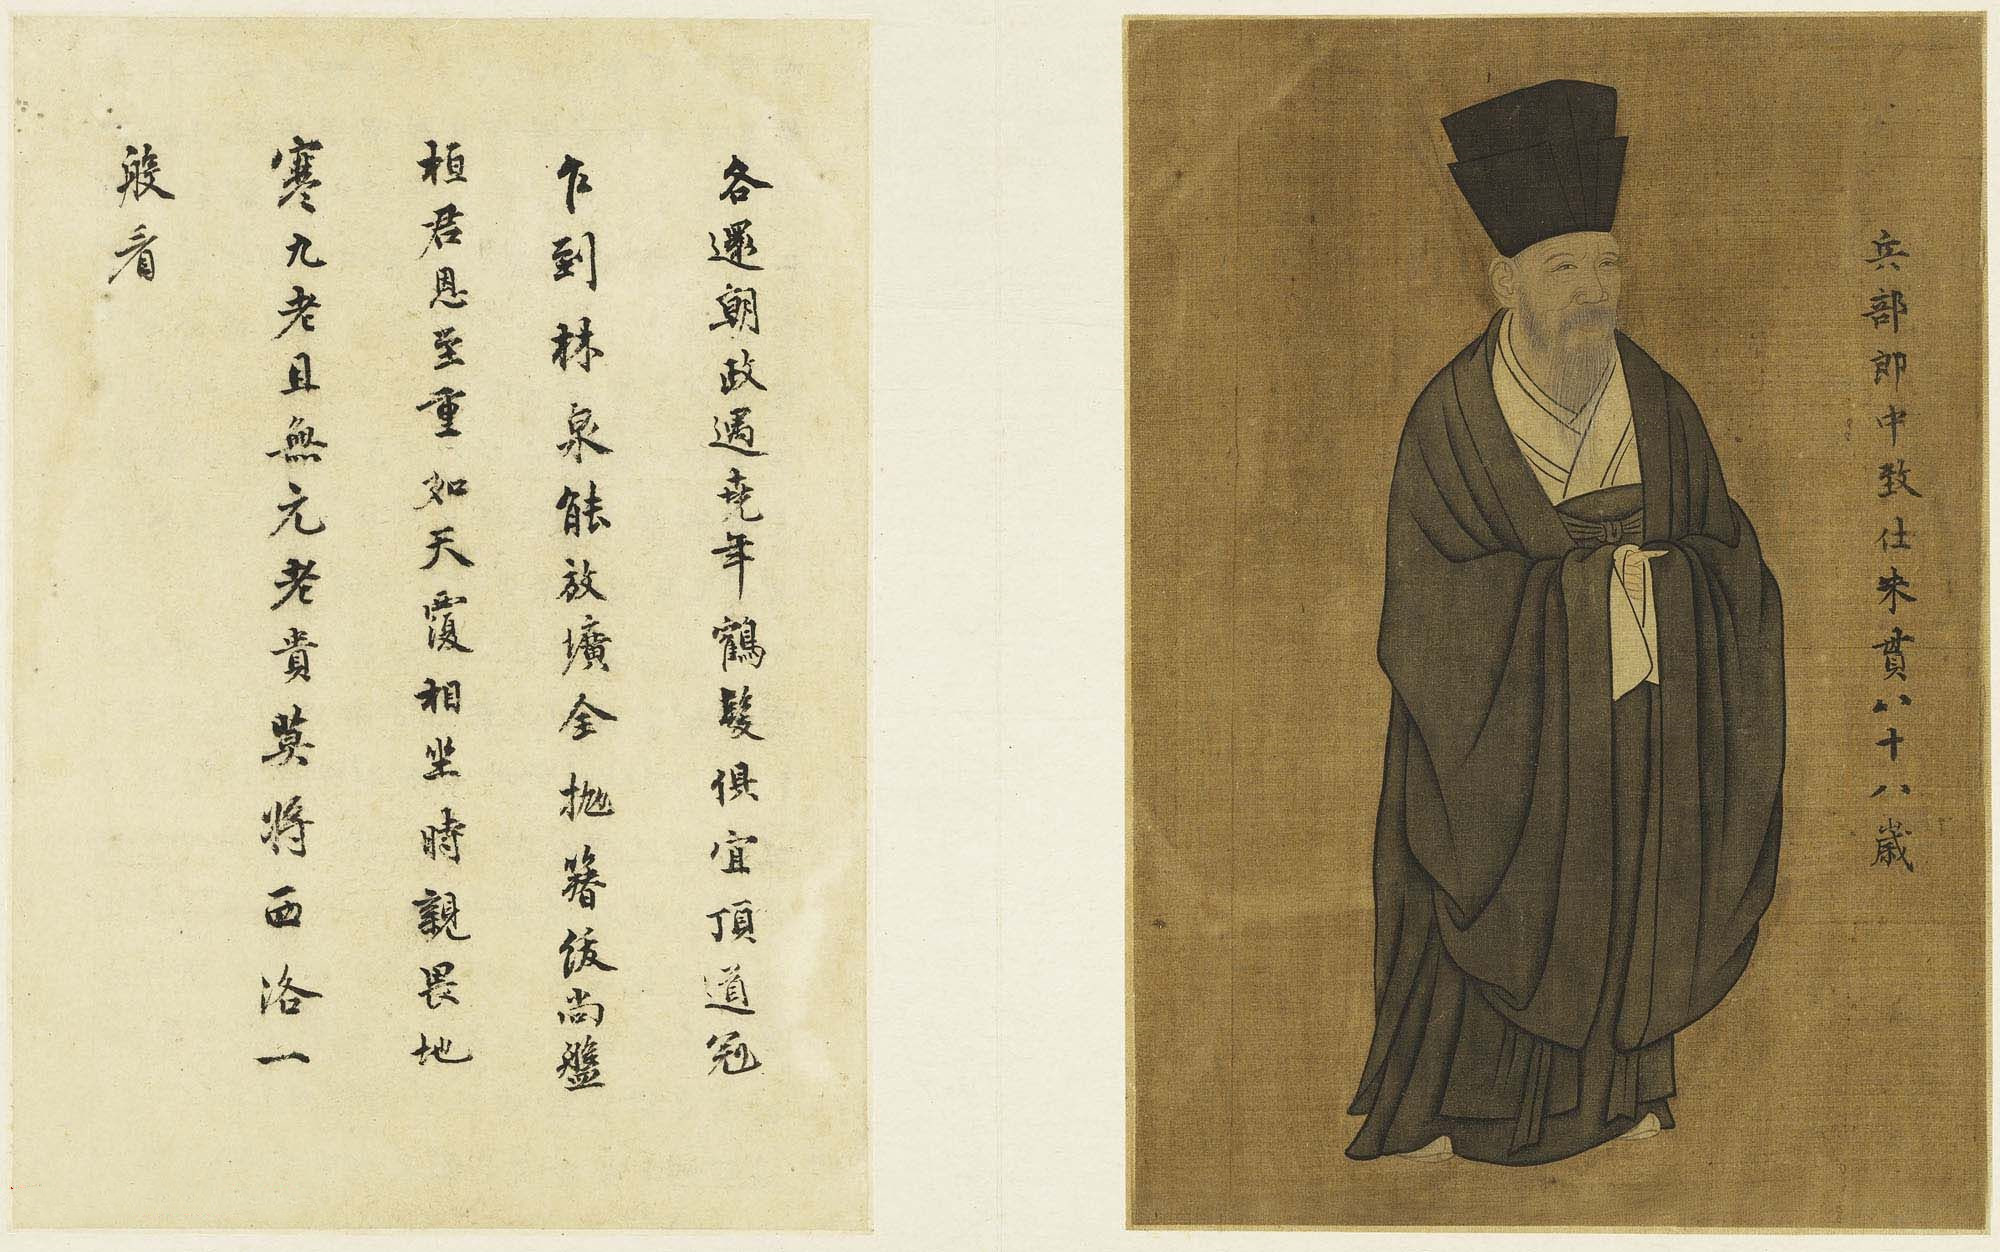 兵部郎中致仕朱貫八十八歲
各還朝政遇堯年鶴髮俱宜頂道冠
乍到林泉能放壙全抛簪紱尚盤
桓君恩至重如天覆相坐時親畏地
寒九老且無元老貴莫將西洛一
般看